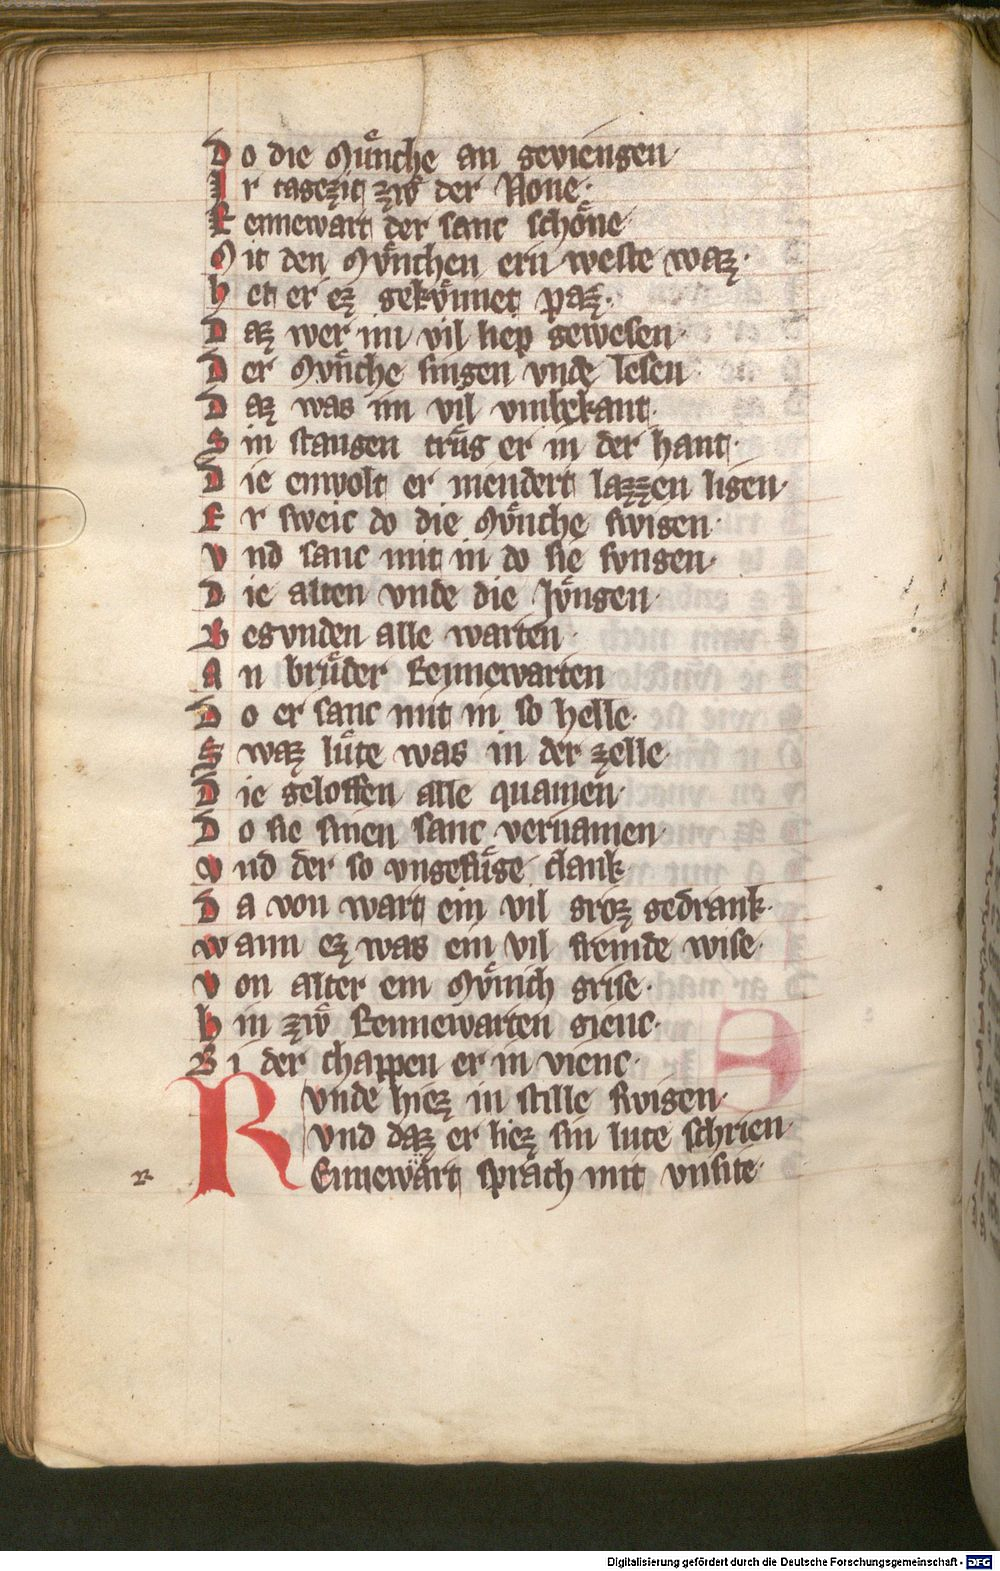 Do die Muͤnche an geviengen
Ir tagezit zwͦ der None·
Rennewart der sanc schoͤne
Mit den Mvͤnchen ern weste waz·
Het er ez gekvͤnnet paz·
Daz wer im vil liep gewesen·
Der Mvͤnche singen vnde lesen
Daz was im vil vmbekant·
Sin stangen truͤg er in der hant·
Die enwolt er niendert lazzen ligen·
Er sweic do die Mvͤnche swigen·
Vnd sanc mit in do sie svngen·
Die alten vnde die Jvͤngen·
Begvnden alle warten·
An bruͤder Rennewarten
Do er sanc mit in so helle·
Swaz luͤte was in der zelle·
Die geloffen alle quamen·
Do sie sinen sanc vernamen·
Vnd der so vngefuͤge clank
Da von wart ein vil groz gedrank·
Wann ez was ein vil fremde wise·
Von alter ein Mvͤnich grise·
Hin zwͦ Rennewarten gienc·
Bi der chappen er in vienc·
Vnde hiez in stille swigen·
Vnd daz er liez sin lute schrien
REnnewart sprach mit vnsite·
Digitalisierung gefördert durch die Deutsche Forschungsgemeinschaft - DFG